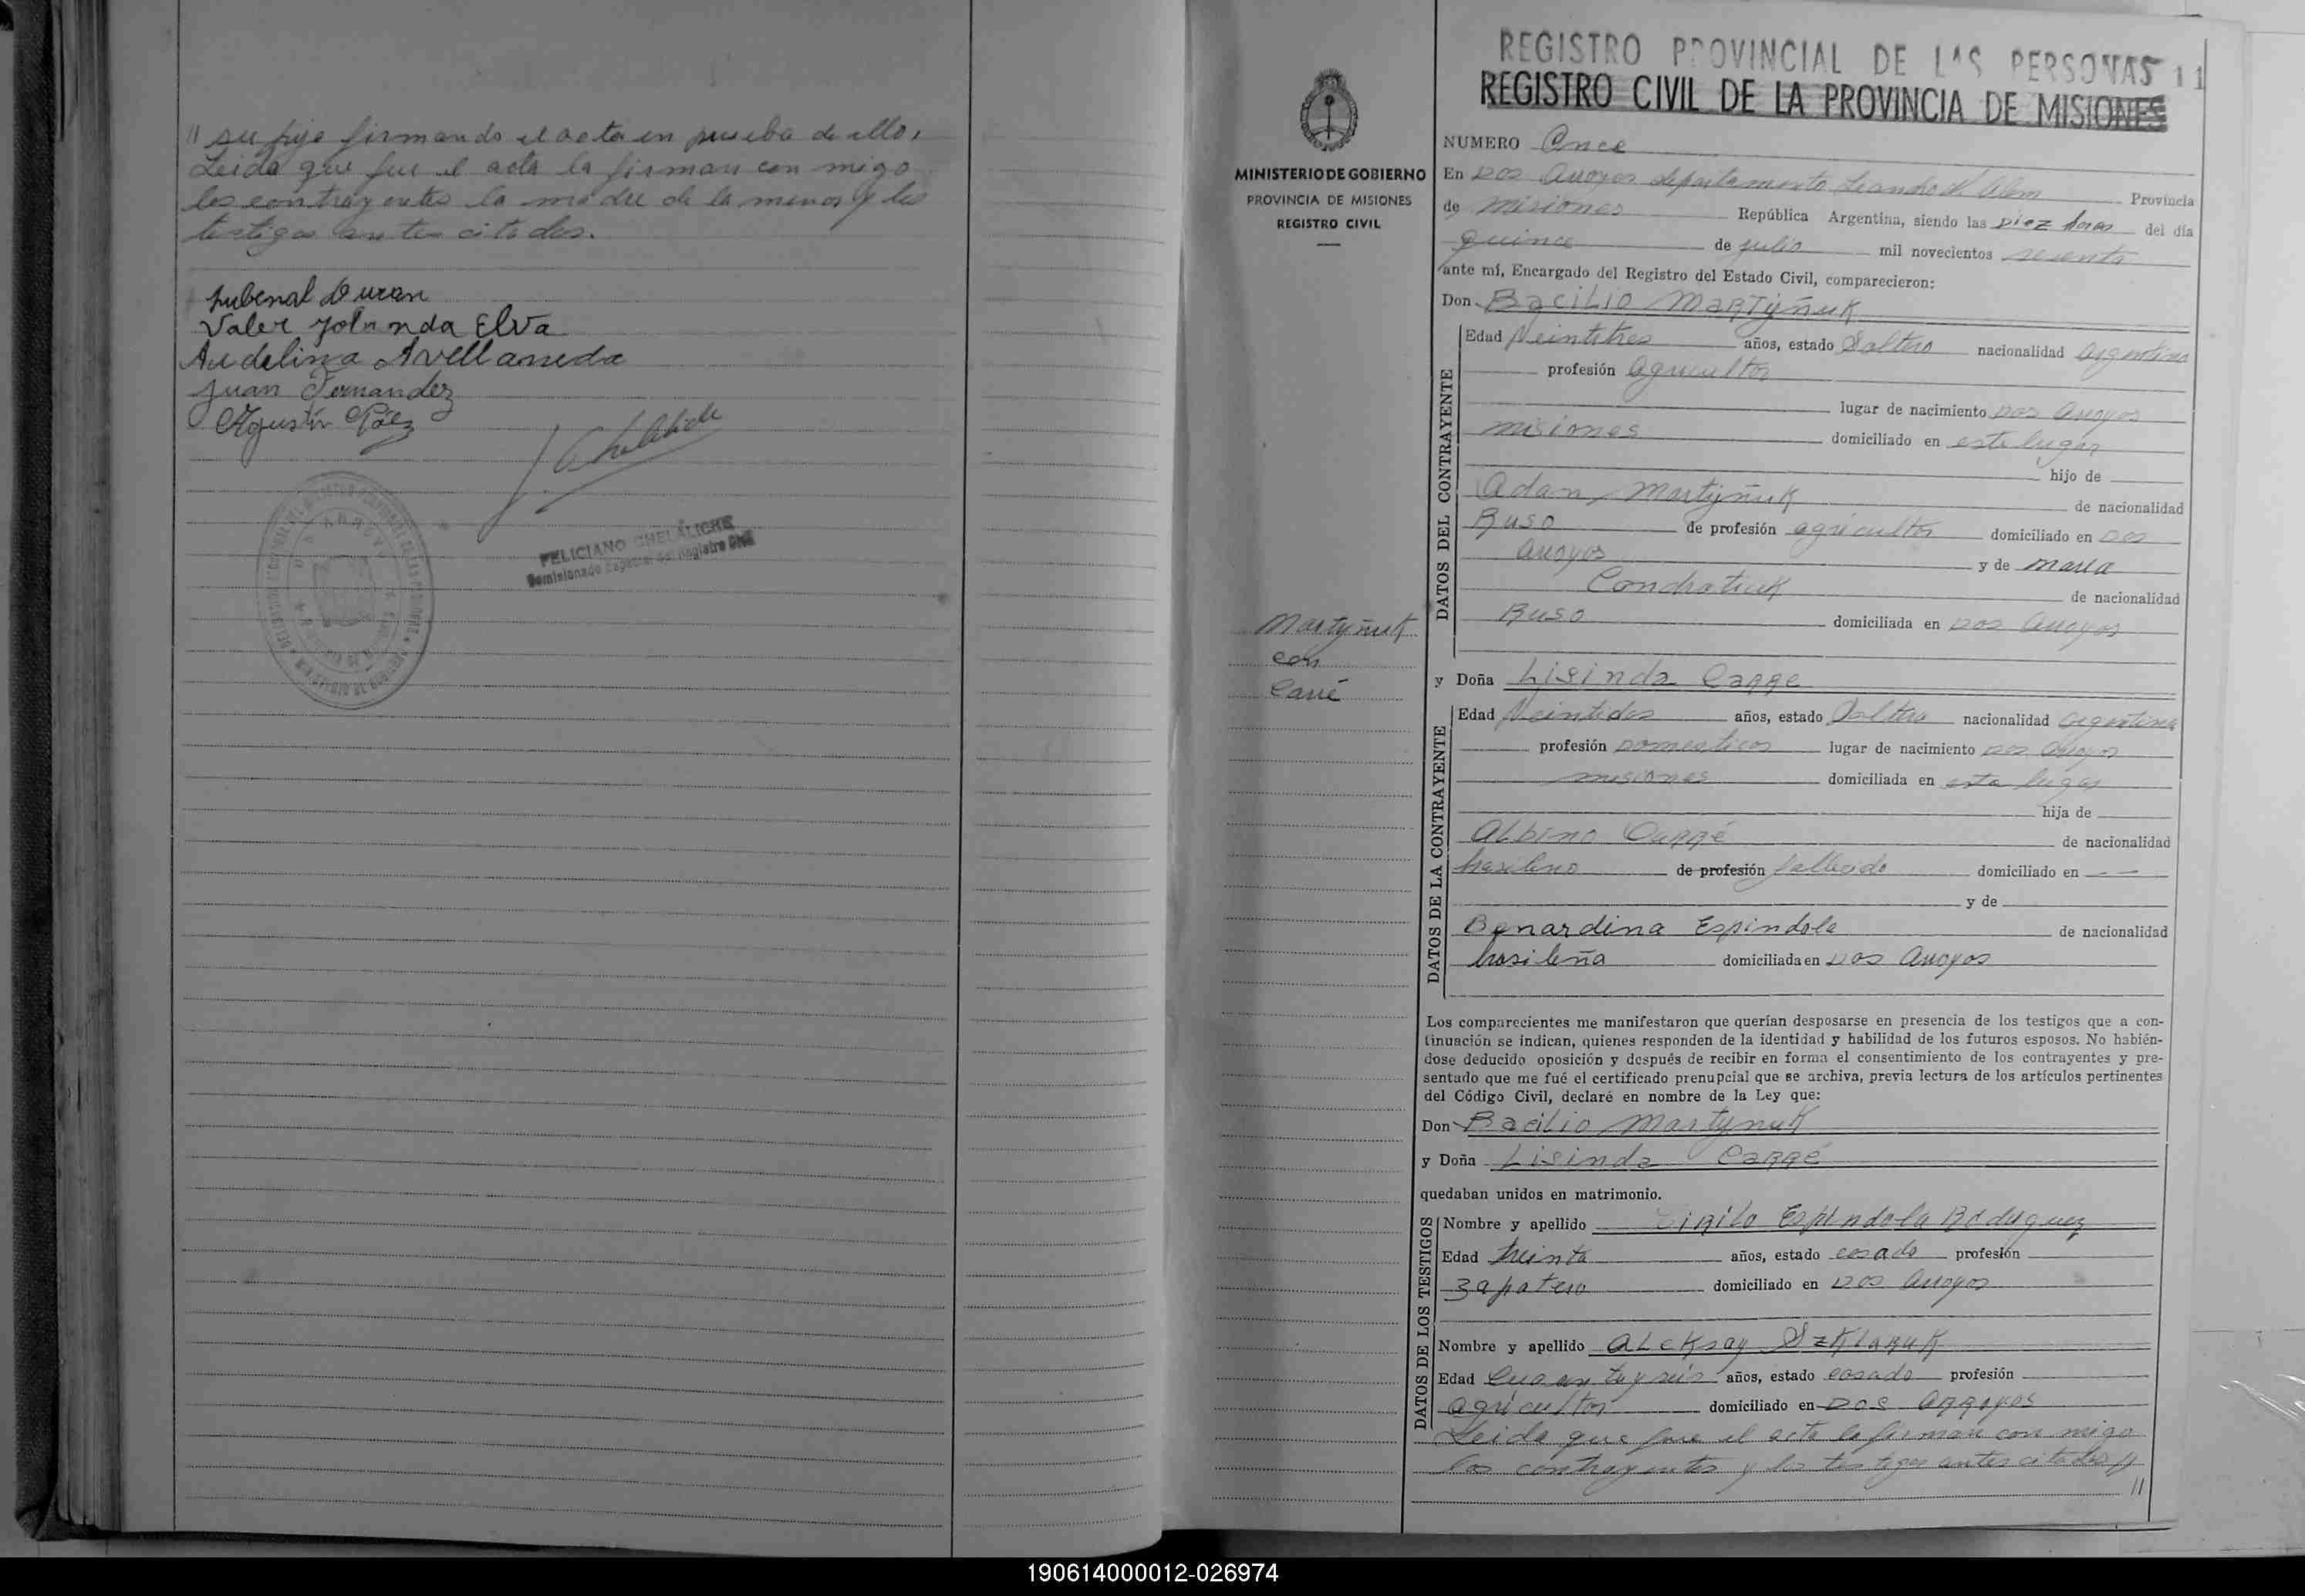 // su hijo firmando el acta en prueba de ello.
Leida que fue el acta la firman con migo
los contrayentes la madre de la menor y los
testigos antes citados.
Jubenal Duran
Valer Yolanda Elva
Audelina Avellaneda
Juan Fernandez
Agustín Páez
FELICIANO CHELALICHE
Comisionado Especial del Registro Civil
MINISTERIO DE GOBIERNO
PROVINCIA DE MISIONES
REGISTRO CIVIL
Martyñuk
con
Carré
REGISTRO PROVINCIAL DE LAS PERSONAS 11
REGISTRO CIVIL DE LA PROVINCIA DE MISIONES
NUMERO Once
En Dos Arroyos departamento Leandro N. Alem Provincia
de Misiones República Argentina, siendo las Diez horas del día
quince de julio mil novecientos sesenta
ante mí, Encargado del Registro del Estado Civil, comparecieron:
Don Bacilio Martyñuk
DATOS DEL CONTRAYENTE
Edad Veintitres años, estado Soltero nacionalidad argentina
profesión agricultor
lugar de nacimiento Dos Arroyos
misiones domiciliado en este lugar
hijo de
Adan Martyñuk de nacionalidad
Ruso de profesión agricultor domiciliado en Dos
Arroyos y de Maria
Condratiuk de nacionalidad
Ruso domiciliada en Dos Arroyos
y Doña Lisinda Carre
DATOS DE LA CONTRAYENTE
Edad Veintidos años, estado Soltera nacionalidad argentina
profesión Domesticos lugar de nacimiento Dos Arroyos
misiones domiciliada en este lugar
hija de
Albino Carré de nacionalidad
brasileno de profesión fallecido domiciliado en — —
y de
Benardina Espindola de nacionalidad
brasileña domiciliada en Dos Arroyos
Los comparecientes me manifestaron que querían desposarse en presencia de los testigos que a con-
tinuación se indican, quienes responden de la identidad y habilidad de los futuros esposos. No habién-
dose deducido oposición y después de recibir en forma el consentimiento de los contrayentes y pre-
sentado que me fué el certificado prenupcial que se archiva, previa lectura de los artículos pertinentes
del Código Civil, declaré en nombre de la Ley que:
Don Bacilio Martynuk
y Doña Lisinda Carré
quedaban unidos en matrimonio.
DATOS DE LOS TESTIGOS
Nombre y apellido Cirilo Espindola Rodyguez
Edad treinta años, estado casado profesión
zapatero domiciliado en Dos Arroyos
Nombre y apellido Aleksay Szklaruk
Edad Cuarentayseis años, estado casado profesión
agricultor domiciliado en Dos Arroyos
Leida que fue el acta la firman con migo
los contrayentes y los testigos antes citados //
//
190614000012-026974